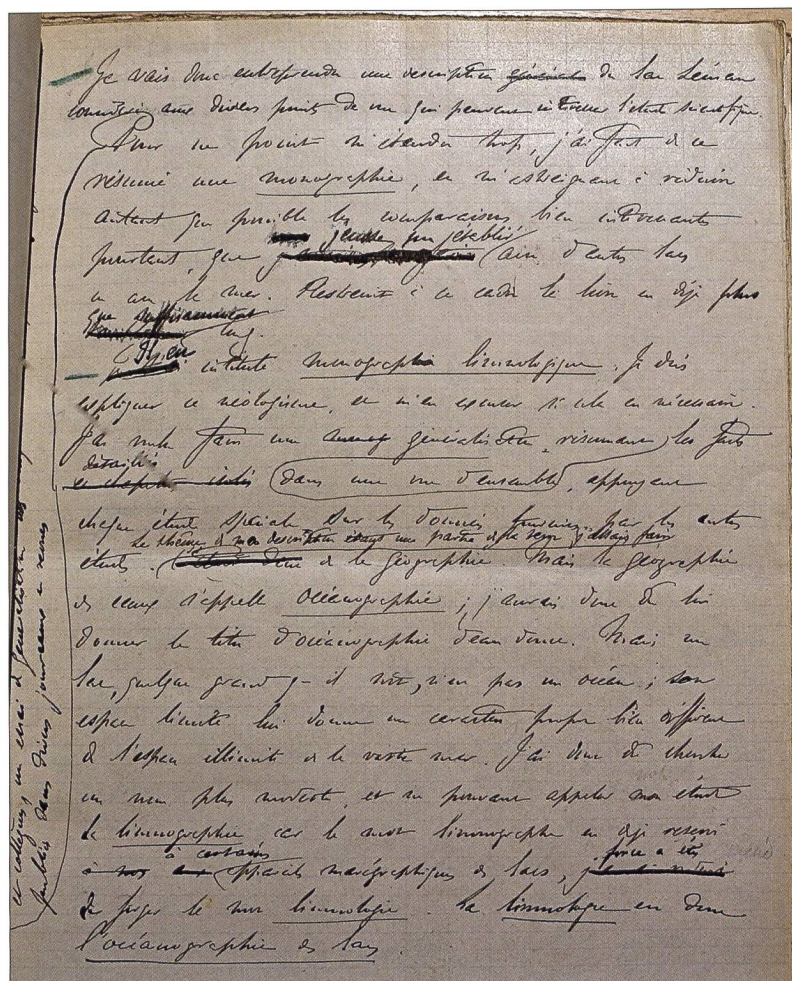 Je vais donc entreprendre une description générale du lac Léman
considéré aux divers points de vue qui peuvent intéresser l'étude scientifique.
Pour ne point m'étendre trop, j'ai fait de ce
résumé une monographie, en m'astreignant à réduire
autant que possible les comparaisons bien intéressantes
pourtant, que
j'eusse pu établir
avec d'autres lacs
ou avec la mer. Restreint à ce cadre le livre est déjà plus
que suffisamment
long.
intitulé monographie limnologique. Je dois
expliquer ce néologisme, et m'en excuser si cela est nécessaire.
J'ai voulu faire une généralisation, résumant les faits
détaillés
et chapitres isolés dans une vue d'ensemble, appuyant
chaque étude spéciale sur les données fournies par les autres
le thème de ma description étant une partie de la terre j'allais faire
études. de la géographie. Mais la géographie
des eaux s'appelle océanographie ; j'aurais donc dû lui
donner le titre d'océanographie d'eau douce. Mais un
lac, quelque grand qu'il soit, n'est pas un océan ; son
espace limité lui donne un caractère propre bien différent
de l'espace illimité de la vaste mer. J'ai donc dû chercher
un nom plus modeste, et ne pouvant appeler mon étude
la limnographie car le mot limnographe est déjà réservé
à certains
à nos appareils marégraphiques des lacs,
force a été
de forger le mot limnologie. La limnologie est donc
l'océanographie des lacs.
et collègues, un essai de généralisation
publiés dans divers journaux et revues